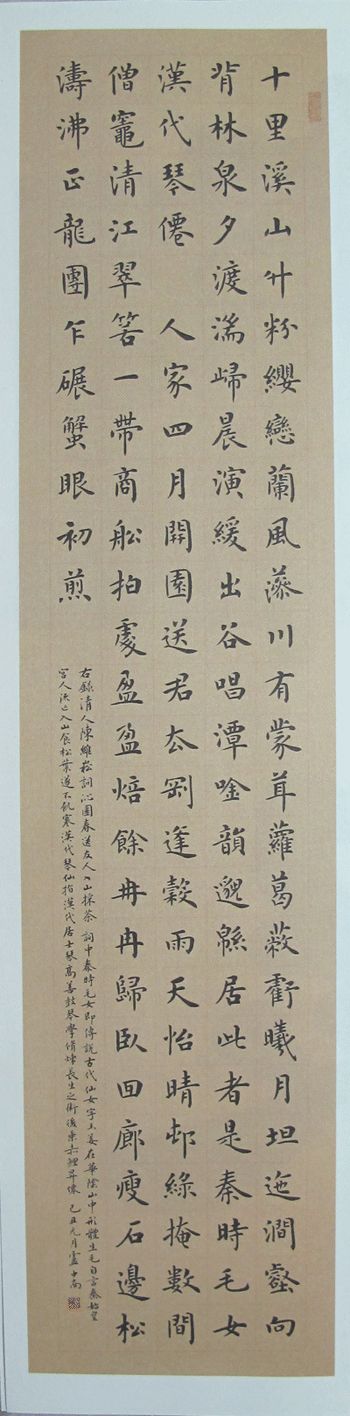 十里溪山竹粉纓巒蘭風川有蒙茸蘿葛蔽虧曦月坦迤澗壑向
背林泉夕渡湍歸晨演緩出谷唱潭唫韻邈緜居此者是秦時毛女
漢代琴僊　人家四月開園送君去剛逢穀雨天怡晴邨綠掩數間
僧竈清江翠箬一帶商船拍處盈盈焙餘冉冉歸臥回廊瘦石邊松
濤沸正龍團乍碾蟹眼初煎
右錄清人陳維崧詞沁園春送友人入山採茶 詞中秦時毛女即傳說古代仙女字玉姜在華陰山中形體生毛自言秦始皇
宮人流亡入山食松葉遂不飢寒漢代琴仙指漢代居士琴高善鼓琴學修煉長生之術後乘赤鯉昇僊 己丑元月盧中南